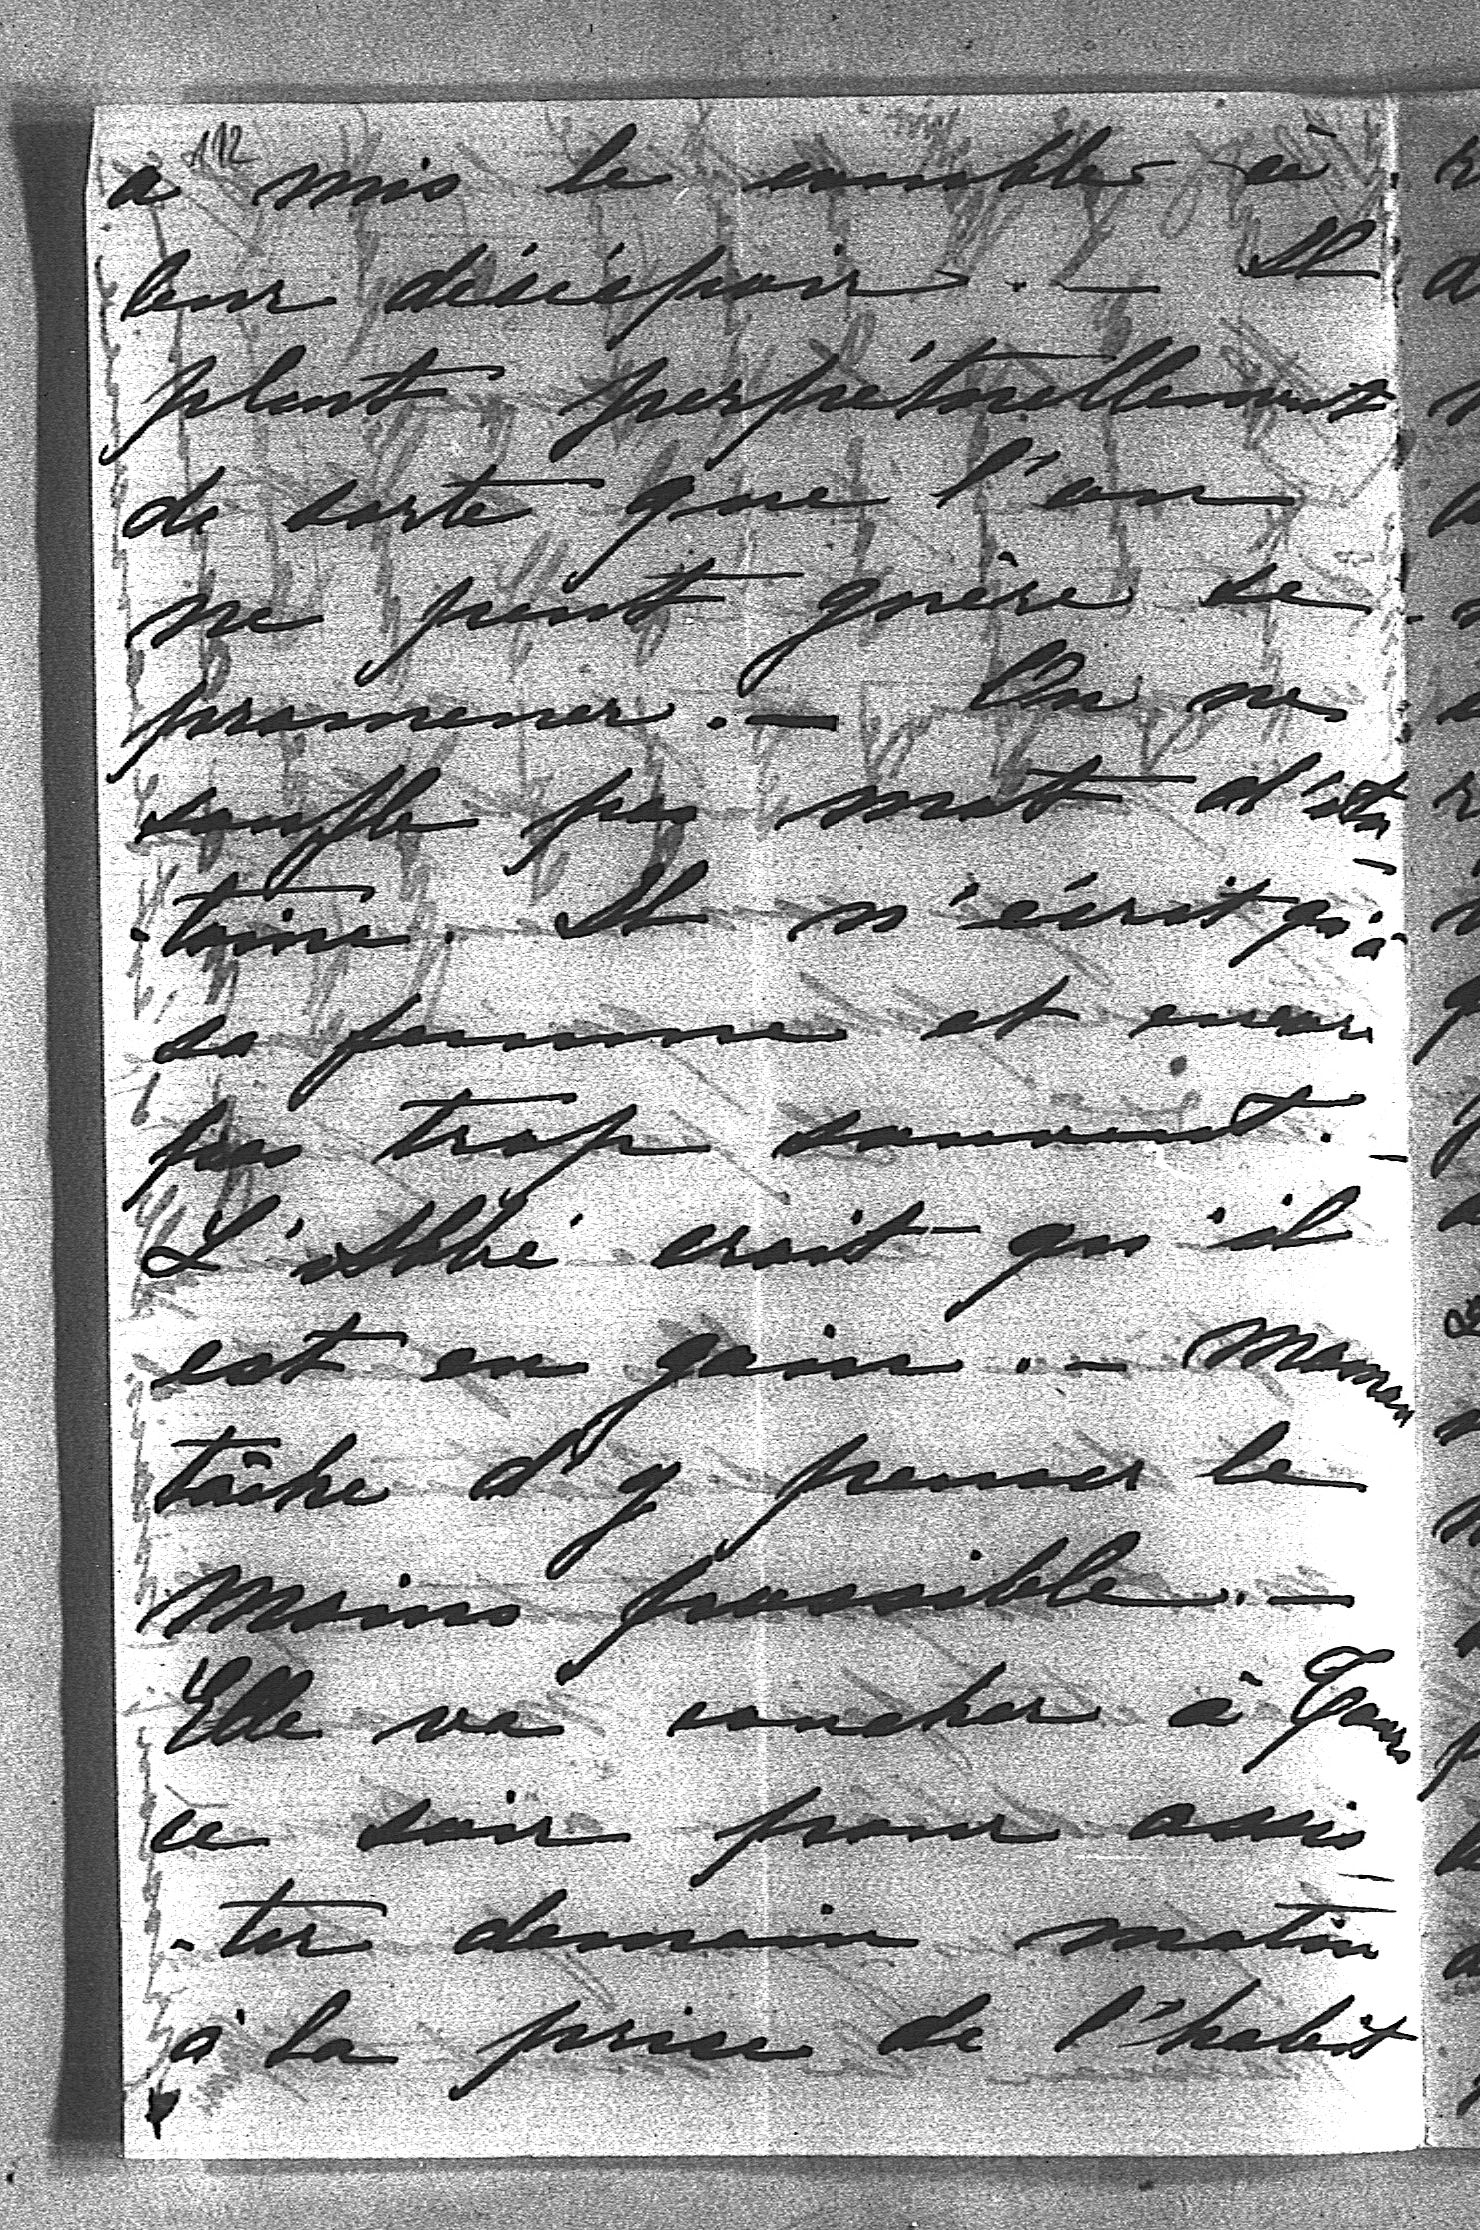 112
a mis le comble à
leur désespoir. — Il
pleut perpétuellement
de sorte que l'on
ne peut guère se
promener. — On ne
souffle pas mot d'
-taire. Il n'écrit qu'à
sa femme et encore
pas trop souvent. —
L'abbé croit qu'il
est en gains. — Maman
tâche d'y penser le
moins possible. —
Elle va coucher à Tours
ce soir pour assis
-ter demain matin
à la prise de l'habit